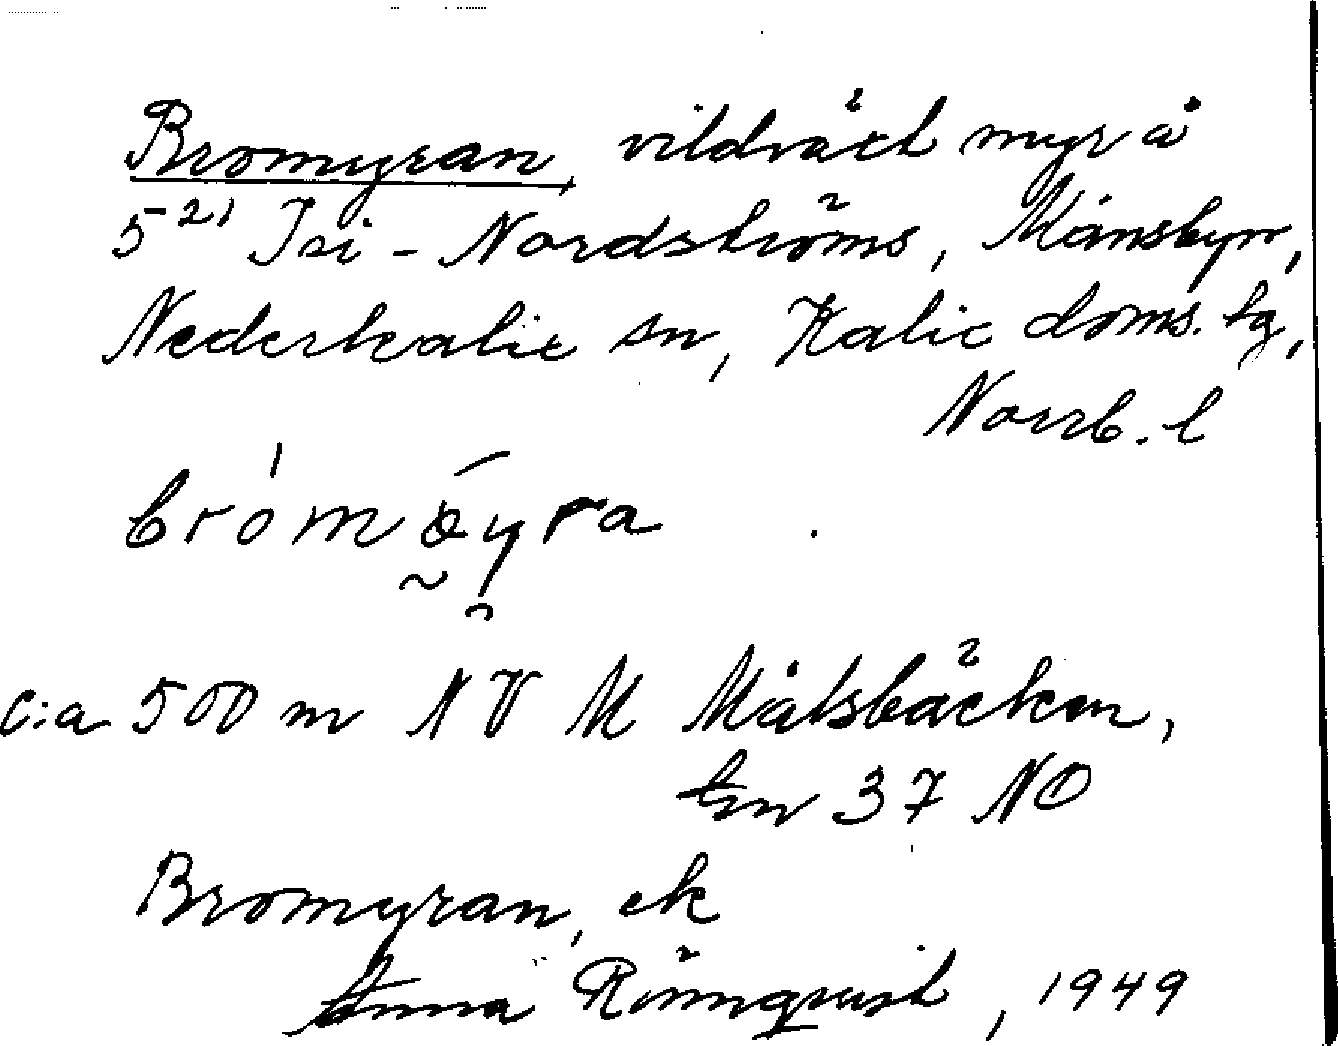 Bromyran, vildväxt myr å
5²¹ Isi - Nordströms, Månsbyn,
Nederkalix sn, Kalix doms. tg,
Norrb. l
brómɷ̄yra
c:a 500 m NV M Målsbäcken,
tm 37 NO
Bromyran, ek
Anna Rönnqvist, 1949